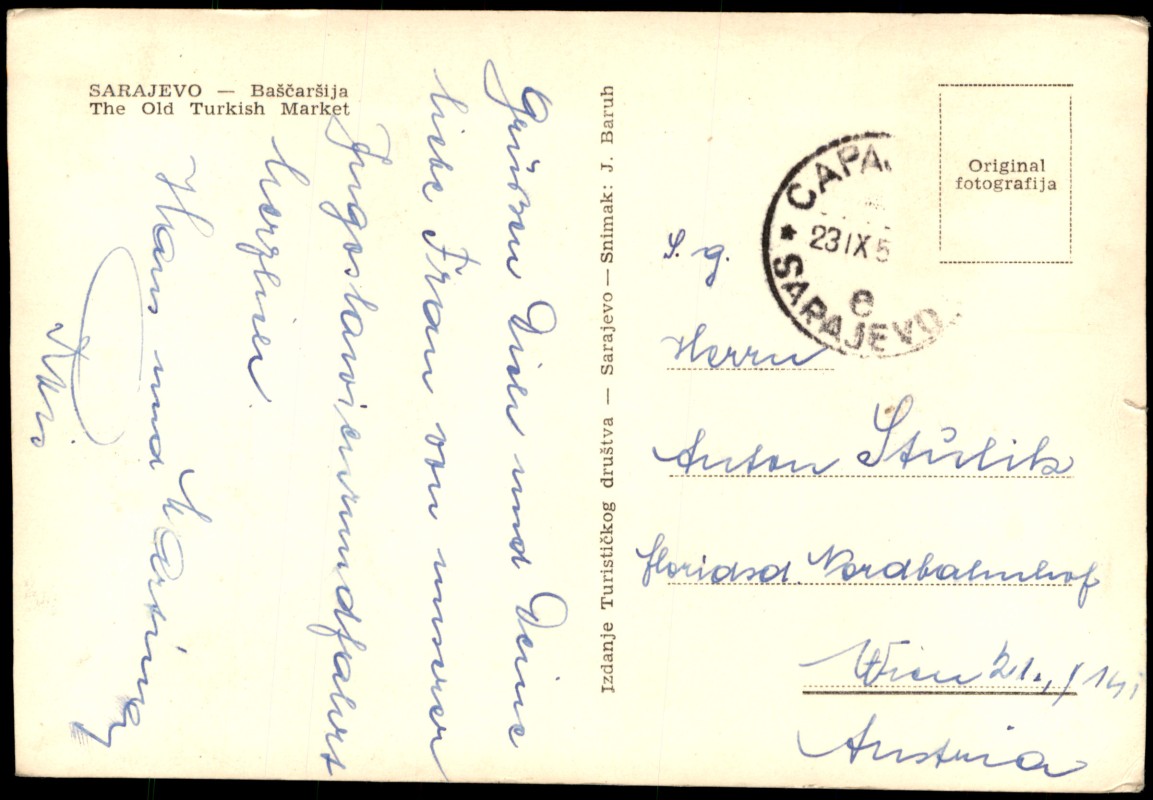 SARAJEVO — Baščaršija
The Old Turkish Market
Grüssen Dich und Deine
liebe Frau von unserer
Jugoslavienrundfahrt
herzlich
Hans und
Izdanje Turističkog društva — Sarajevo — Snimak: J. Baruh
САРА
23 IX 5
8
SARAJEVO
Original
fotografija
S. g.
Herrn
Anton Stulik
floridsd. Nordbahnhof
Wien 21.,
Austria